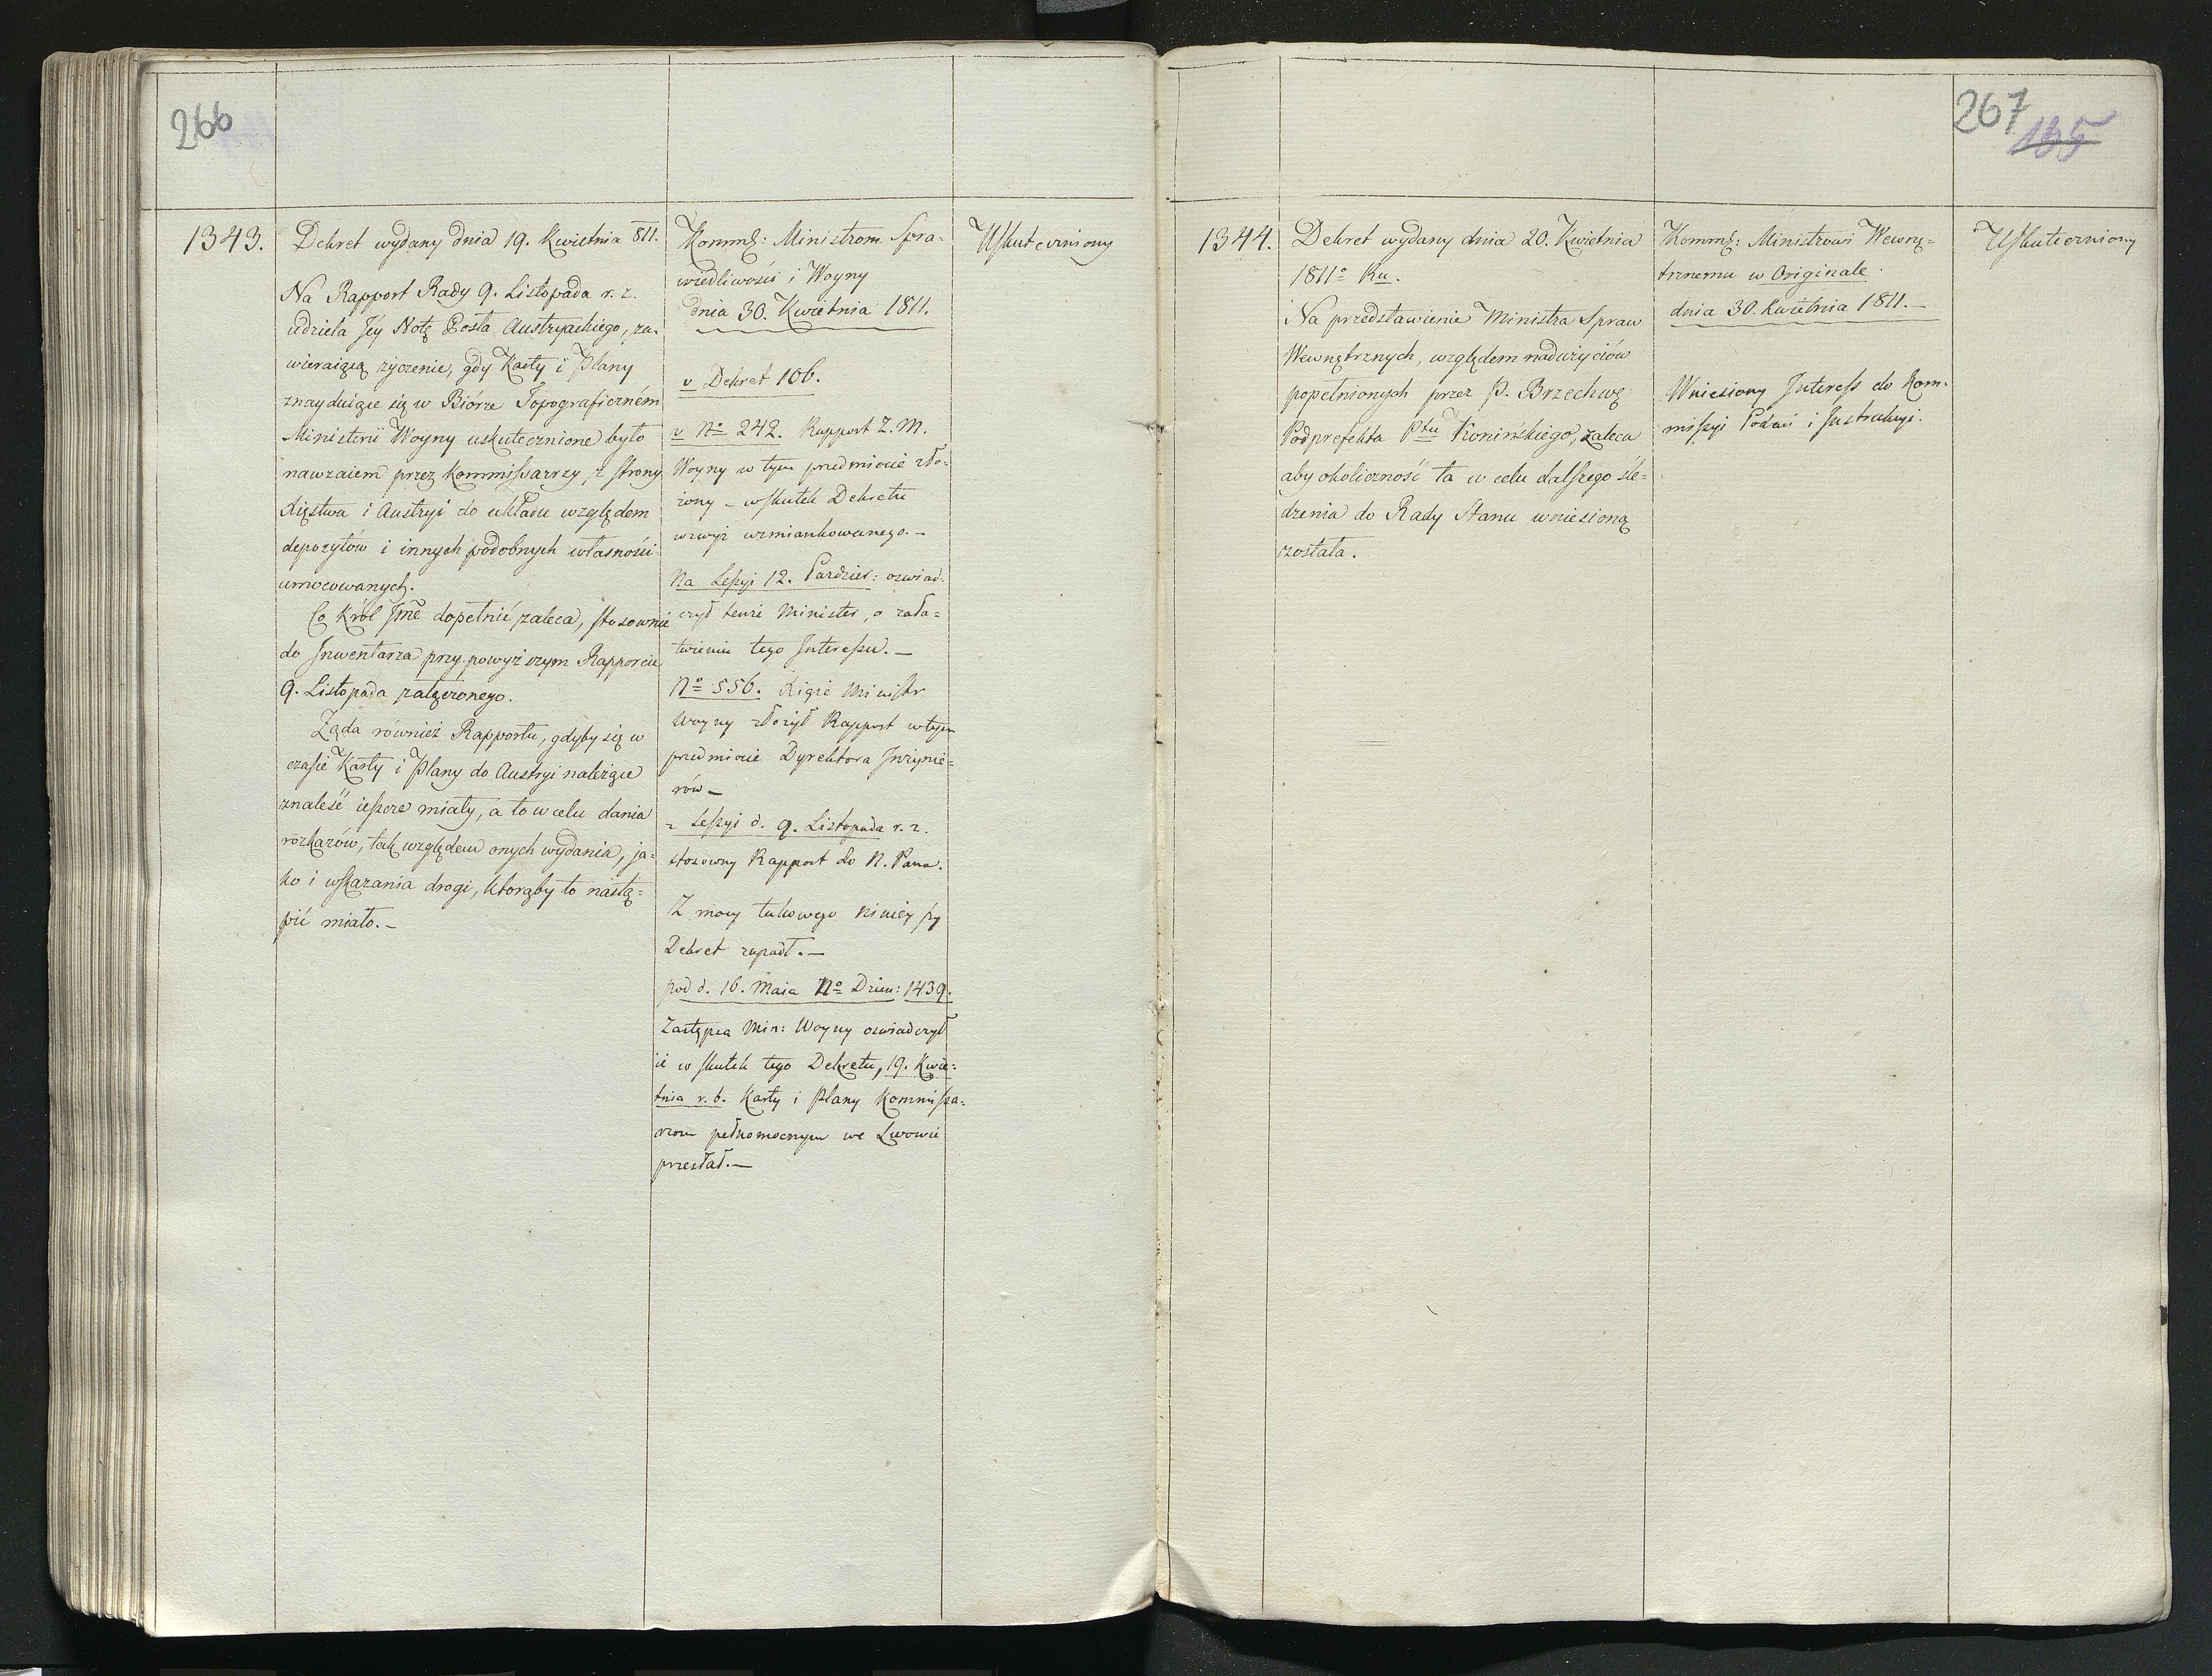 266
1343.
Dekret wydany dnia 19. Kwietnia 811.
Na Rapport Rady 9. Listopada r. z.
udziela Jéy Notę Posła Austryackiego, za-
wieraiącą życzenie, gdy Karty i Plany
znayduiące się w Biórze Topograficzném
Ministerii Woyny uskutecznione było
nawzaiem przez Kommissarzy, z strony
Xięstwa i Austryi do układu względem
depozytów i innych podobnych własności
umocowanych.
Co Król Jmć dopełnić zaleca, stosownie
do Inwentarza przy powyższym Rapporcie
9. Listopada załączonego.
Żąda również Rapportu, gdyby się w
czasie Karty i Plany do Austryi należące
znaleść ieszcze miały, a to w celu dania
rozkazów, tak względem onych wydania, ja-
ko i wskazania drogi, którąby to nastą=
pić miało.-
Kommg: Ministrom Spra-
wiedliwości i Woyny
dnia 30. Kwietnia 1811.
v Dekret 106.
v No 242. Rapport Z. M.
Woyny w tym przedmiocie zło-
żony - wskutek Dekretu
wzwyż wzmiankowanego.-
Na Sessyi 12. Paździer: oswiad-
czył tenże Minister, o zała=
twieniu tego Interessu.-
No 556. Xiąże Ministr
Woyny złożył Rapport w tym
przedmiocie Dyrektora Inżynie=
rów-
z Sessyi d. 9. Listopada r. z.
stosowny Rapport do N. Pana.
Z mocy takowego ninieyszy
Dekret zapadł.-
pod d. 16. Maia No Dzien: 1439.
Zastępca Min: Woyny oswiadczył
iż w skutek tego Dekretu, 19. Kwie-
tnia r. b. Karty i Plany Kommissa-
rzom pełnomocnym we Lwowie
przesłał.-
Uskuteczniony
267
135
1344.
Dekret wydany dnia 20. Kwietnia
1811o Ru.
Na przedstawienie Ministra Spraw
Wewnętrznych, względem nadużyciów
popełnionych przez P. Brzechwę
Podprefekta Ptu Konińskiego, zaleca
aby okoliczność ta w celu dalszego śle=
dzenia do Rady Stanu wniesioną
została.
Kommg: Ministrowi Wewnę=
trznemu w Originale.
dnia 30. Kwietnia 1811.-
Wniesiony Interess do Kom-
missyi Podań i Instrukcyi.
Uskuteczniony